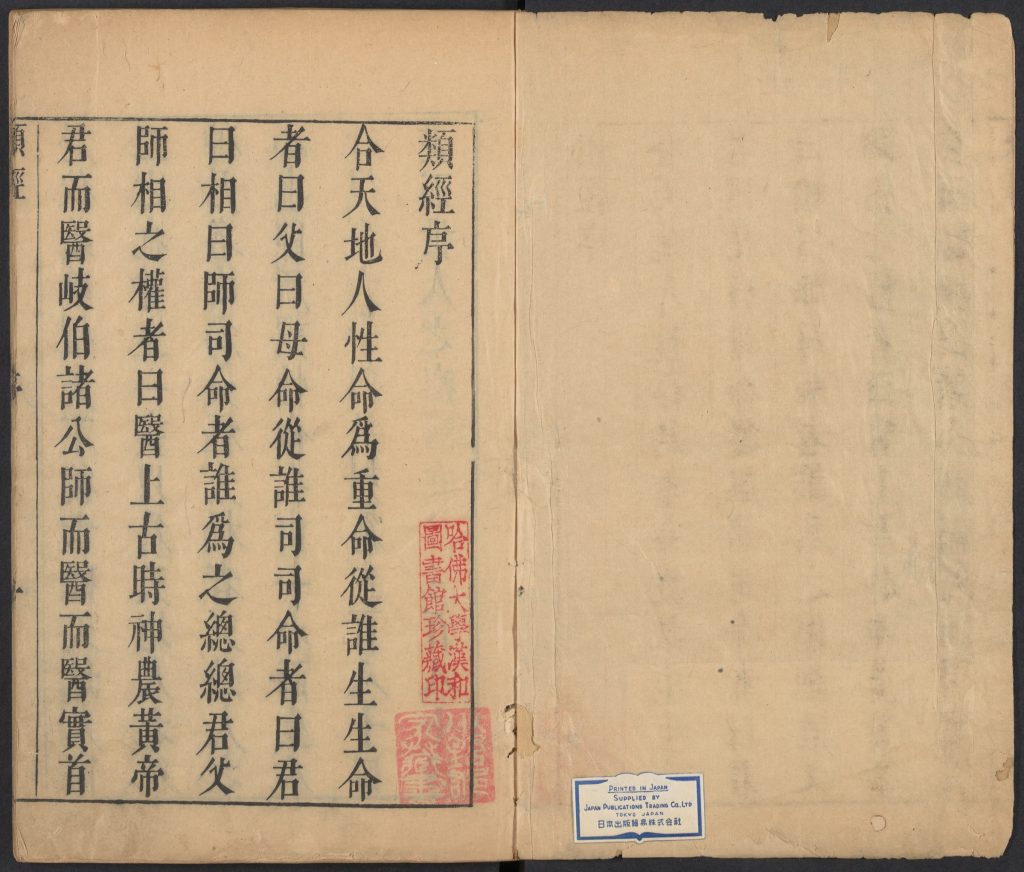 類經序
合天地人性命爲重命從誰生生命
者曰父曰母命從誰司司命者曰君
曰相曰師司命者誰爲之總總君父
師相之權者曰醫上古時神農黃帝
君而醫岐伯諸公師而醫而醫實首
類經
哈佛大學漢和
圖書館珍藏印
PRINTED IN JAPAN
SUPPLIED BY
JAPAN PUBLICATIONS TRADING CO., LTD
TOKYO JAPAN
日本出版貿易株式会社